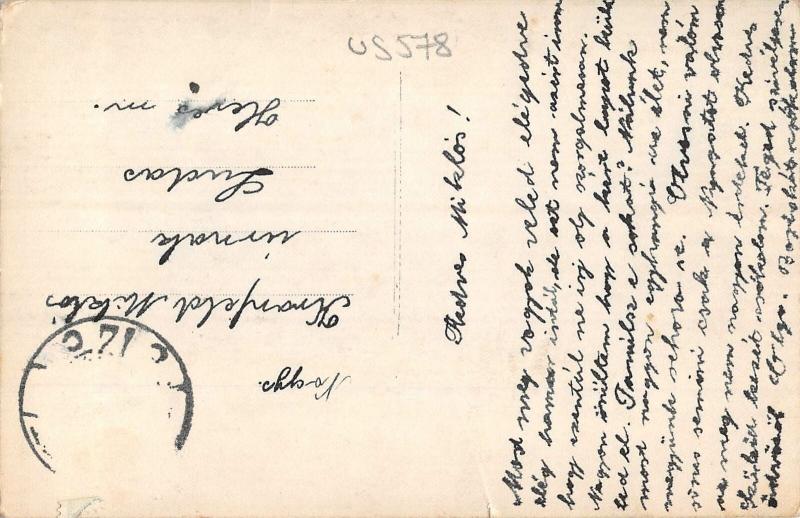 US578
Nagys.
Kranfeld Miklós
úrnak
Ludas
Heves m.
Kedves Miklós!
Most meg vagyok veled elégedve
elég hamar de ezt nem azért irom
hogy ezentúl ne irj oly szorgalmasan.
Nagyon örültem hogy a kert lapot küld
ted el. Tanulsz e sokat? Nálunk
most nagyon egyhangú az élet, nem
megyünk sehova se. Olvasni valóm
sincs semmi csak a Nyugatot olvasom
az meg nem nagyon érdekel. Kedves
Szüleid kezeit csókolom. Téged szivélyesen
üdvözöl Olga.